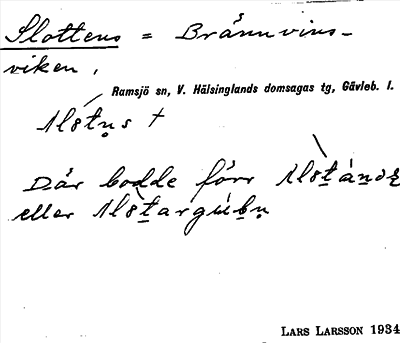 Slottens = Brännvins-
viken,
Ramsjö sn, V. Hälsinglands domsagas tg, Gävleb. l.
Alstṇs +
Där bodde förr Alsṯáṉdẹ
eller Alsṯargúḇṇ
LARS LARSSON 1934